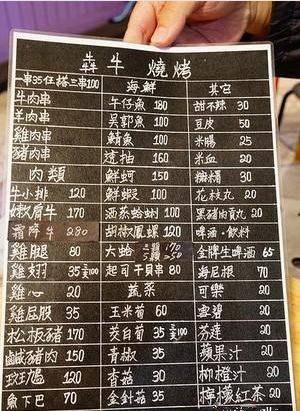 犇牛 燒烤
一串35任搭三串100 海鮮 其它
牛肉串 午仔魚 180 甜不辣 30
羊肉串 吳郭魚 100 豆皮 50
雞肉串 鯖魚 100 米腸 25
豬肉串 透抽 160 米血 20
肉類 鮮蚵 150 糯糬 30
牛小排 120 鮮蝦 100 花枝丸 20
嫩肩牛 170 酒蒸蛤蜊 100 黑豬肉貢丸 20
霜降牛 280 胡椒鳳螺 120 啤酒、飲料
雞腿 80 大蛤 三顆170 5顆250 金牌生啤酒 65
雞翅 35 支 100 起司干貝串 80 海尼根 70
雞心 20 蔬菜 可樂 20
雞屁股 35 玉米筍 60 雪碧 20
松板豬 170 茭白筍 35 支100 芬達 20
鹹豬肉 150 青椒 35 蘋果汁 20
120 香菇 30 柳橙汁 20
魚下巴 70 金針菇 35 檸檬紅茶 20